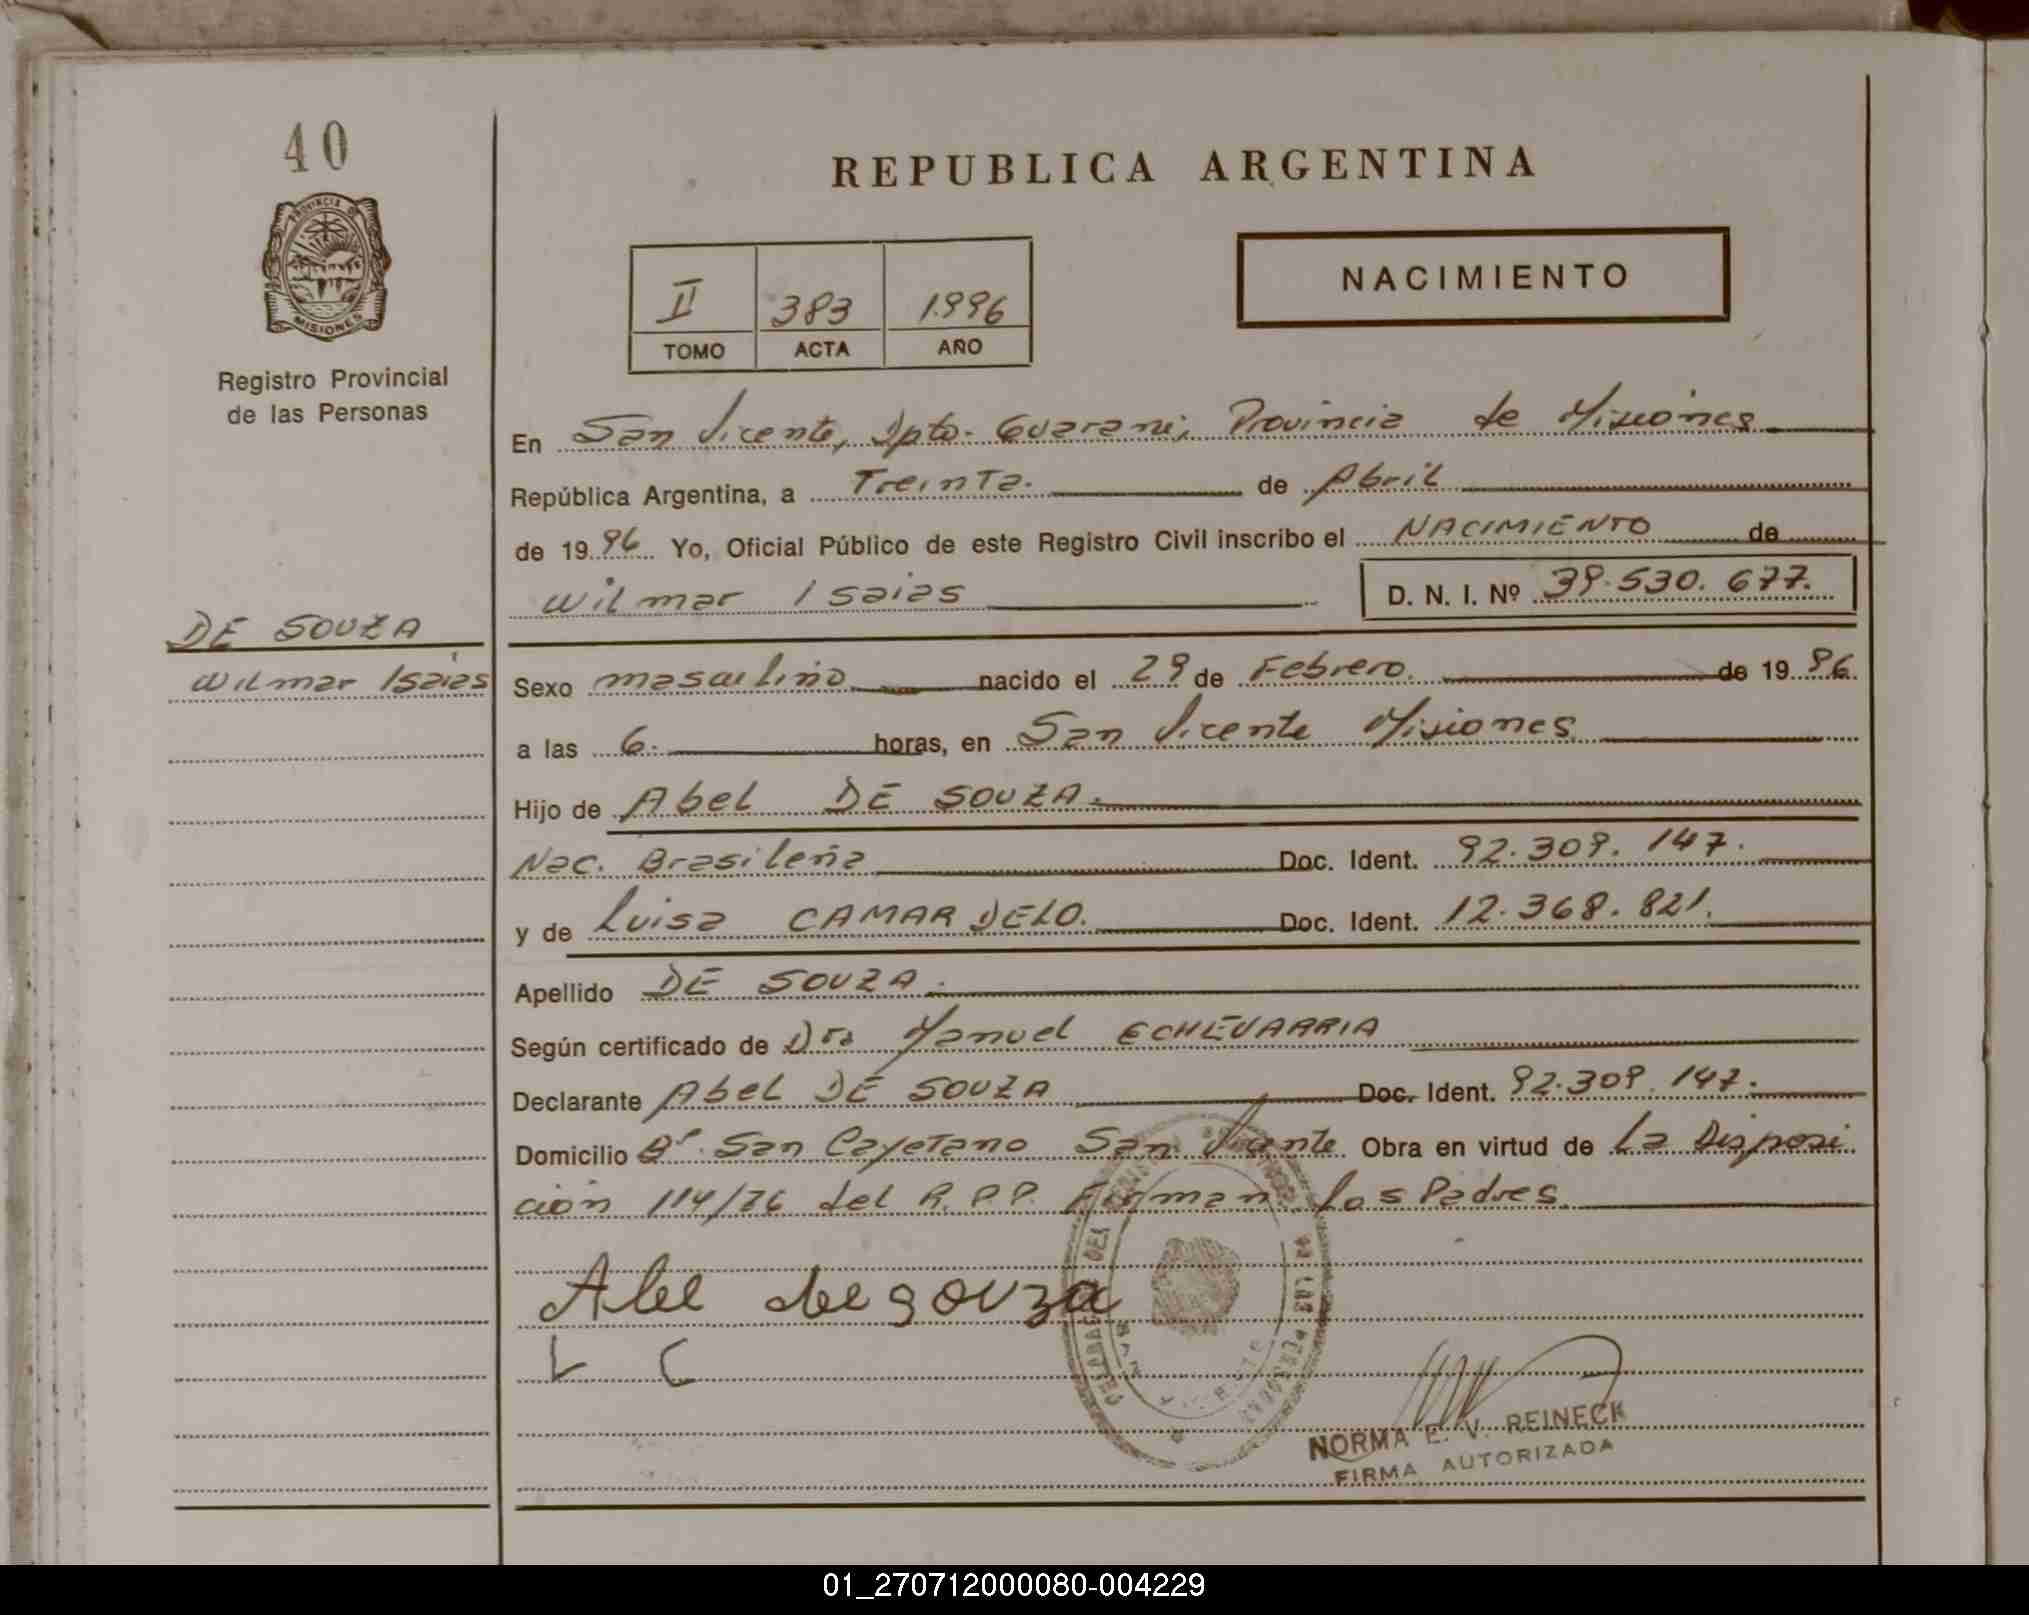 40
PROVINCIA DE
MISIONES
Registro Provincial
de las Personas
DE SOUZA
Wilmar Isaias
REPUBLICA ARGENTINA
NACIMIENTO
II 383 1.996
TOMO ACTA AÑO
En San Vicente, Dpto. Guarani, Provincia de Misiones
República Argentina, a Treinta. de Abril
de 19 96 Yo, Oficial Público de este Registro Civil inscribo el NACIMIENTO de
Wilmar Isaias D. N. I. Nº 39.530.677.
Sexo masculino nacido el 29 de Febrero. de 19 96.
a las 6. horas, en San Vicente Misiones
Hijo de Abel DE SOUZA.
Nac. Brasileña Doc. Ident. 92.309.147.
y de Luisa CAMARDELO. Doc. Ident. 12.368.821.
Apellido DE SOUZA.
Según certificado de Manuel ECHEVARRIA
Declarante Abel DE SOUZA Doc. Ident. 92.309.147.
Domicilio Bº San Cayetano San Vicente Obra en virtud de La Disposi
ción 114/76 del R.P.P. Firman los Padres.
Abel de souza
L C
NORMA E. V. REINECK
FIRMA AUTORIZADA
01_270712000080-004229